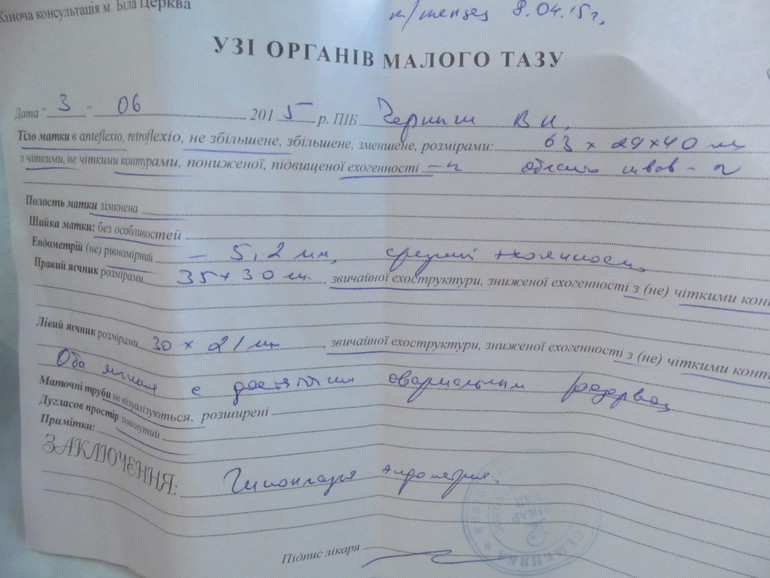 Жіноча консультація м. Біла Церква
8.04.15г.
УЗІ ОРГАНІВ МАЛОГО ТАЗУ
Дата "3" 06 2015 р. ПІБ В.И.
Тіло матки в anteflexio, retroflexio, не збільшене, збільшене, зменшене, розмірами: 63 х 29 х 40 мм
з чіткими, не чіткими контурами, пониженої, підвищеної ехогенності - N область швов - N
Полость матки зімкнена
Шийка матки: без особливостей
Ендометрій (не) рівномірний - 5,2 мм, средней эхогенности
Правий яєчник розмірами 35 х 30 мм, звичайної ехоструктури, зниженої ехогенності з (не) чіткими конт
Лівий яєчник розмірами 30 х 21 мм, звичайної ехоструктури, зниженої ехогенності з (не) чіткими конт
Оба с овариальным резервом
Маточні труби не візуалізуються, розширені
Дугласов простір зімкнутий
Примітки:
ЗАКЛЮЧЕННЯ: Гипоплазия эндометрия.
Підпис лікаря
ЛІКАР